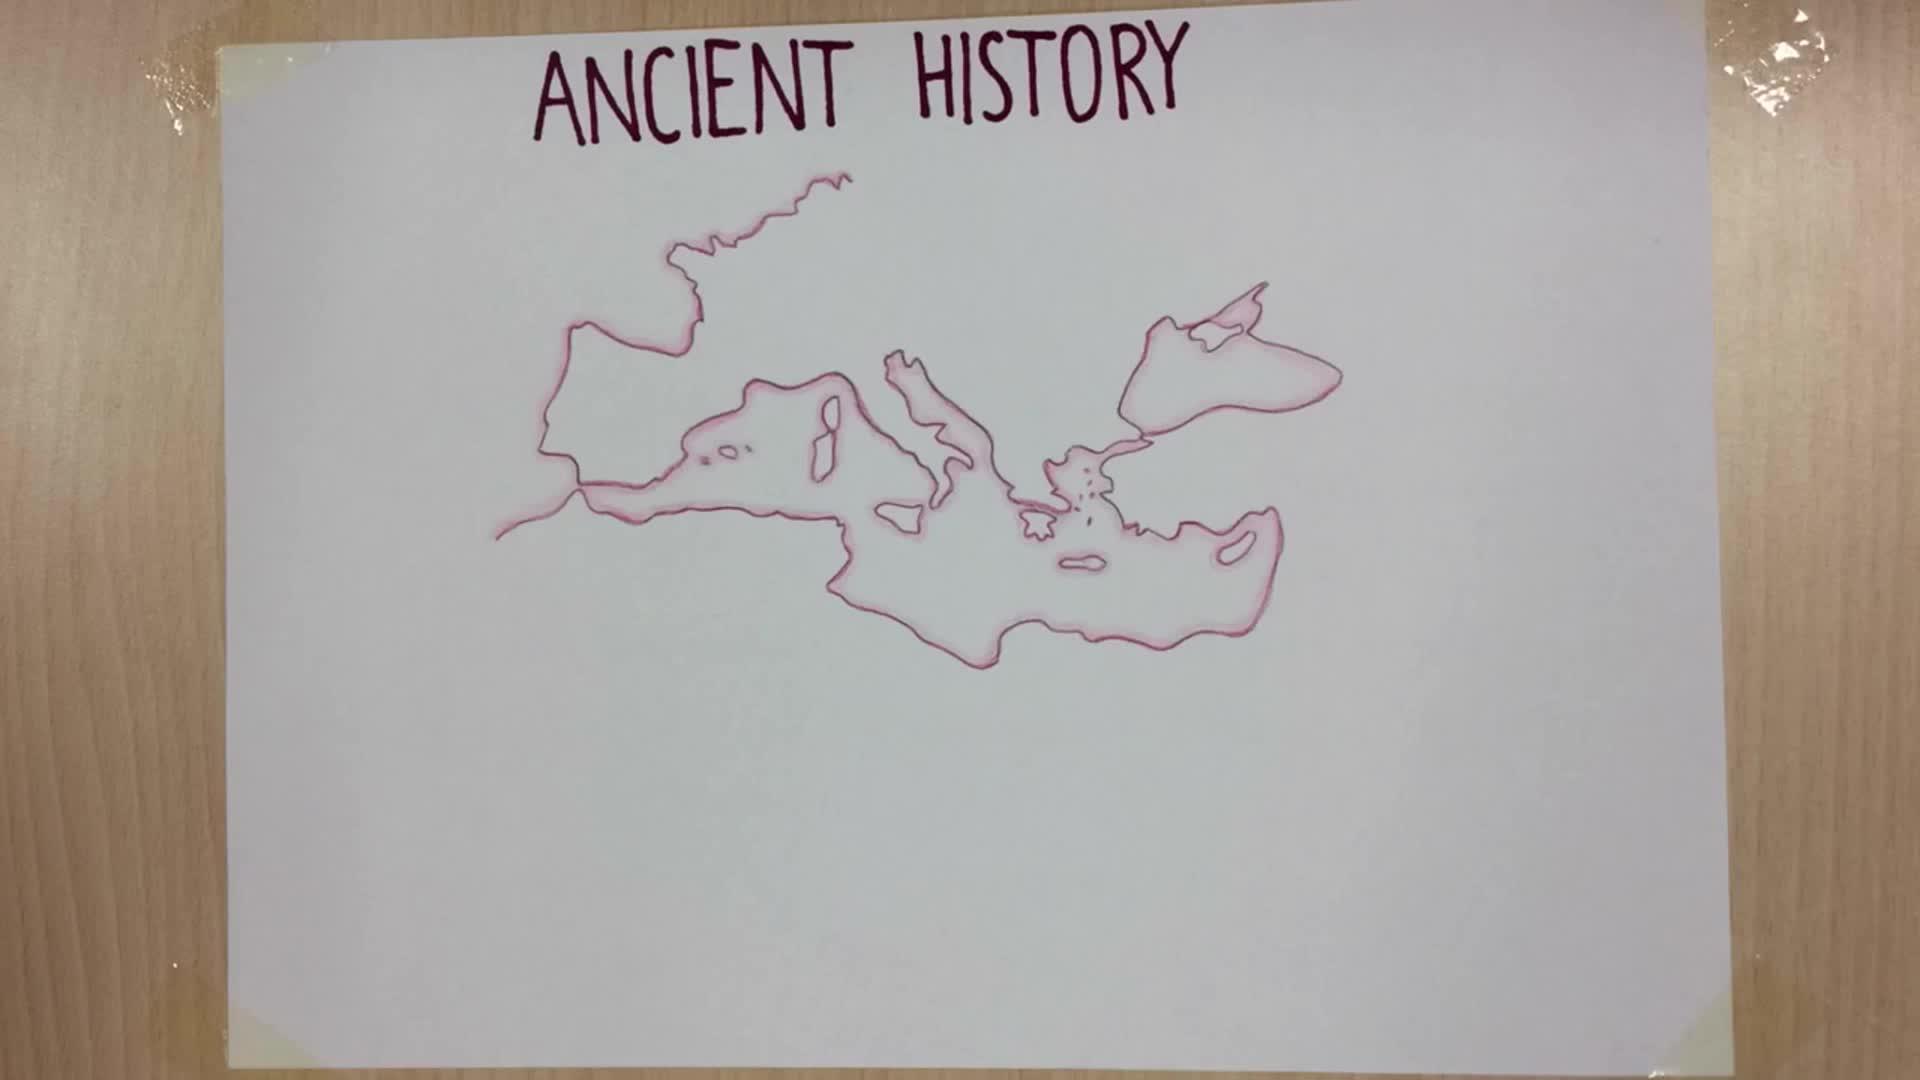 ANCIENT HISTORY